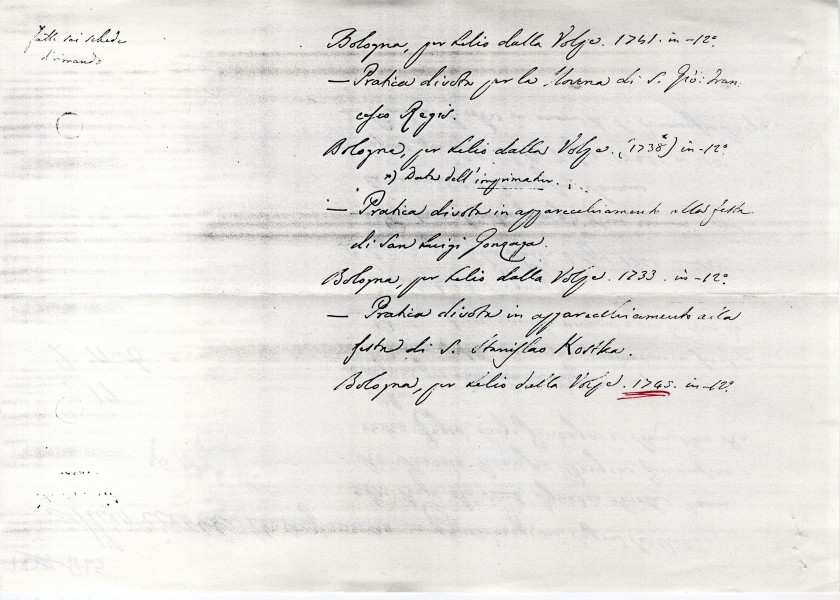 Fatti sei schede
di rimando
Bologna, per Lelio dalla Volpe. 1741. in-12°.
— Pratica divota per la Novena di S. Gio: Fran:
cesco Regis.
Bologna, per Lelio dalla Volpe. (1738*) in-12°
*) Data dell'imprimatur.
— Pratica divota in apparecchiamento alla festa
di San Luigi Gonzaga.
Bologna, per Lelio dalla Volpe. 1733. in-12°.
— Pratica divota in apparecchiamento alla
festa di S. Stanislao Kostka.
Bologna, per Lelio dalla Volpe. 1745. in-12°.